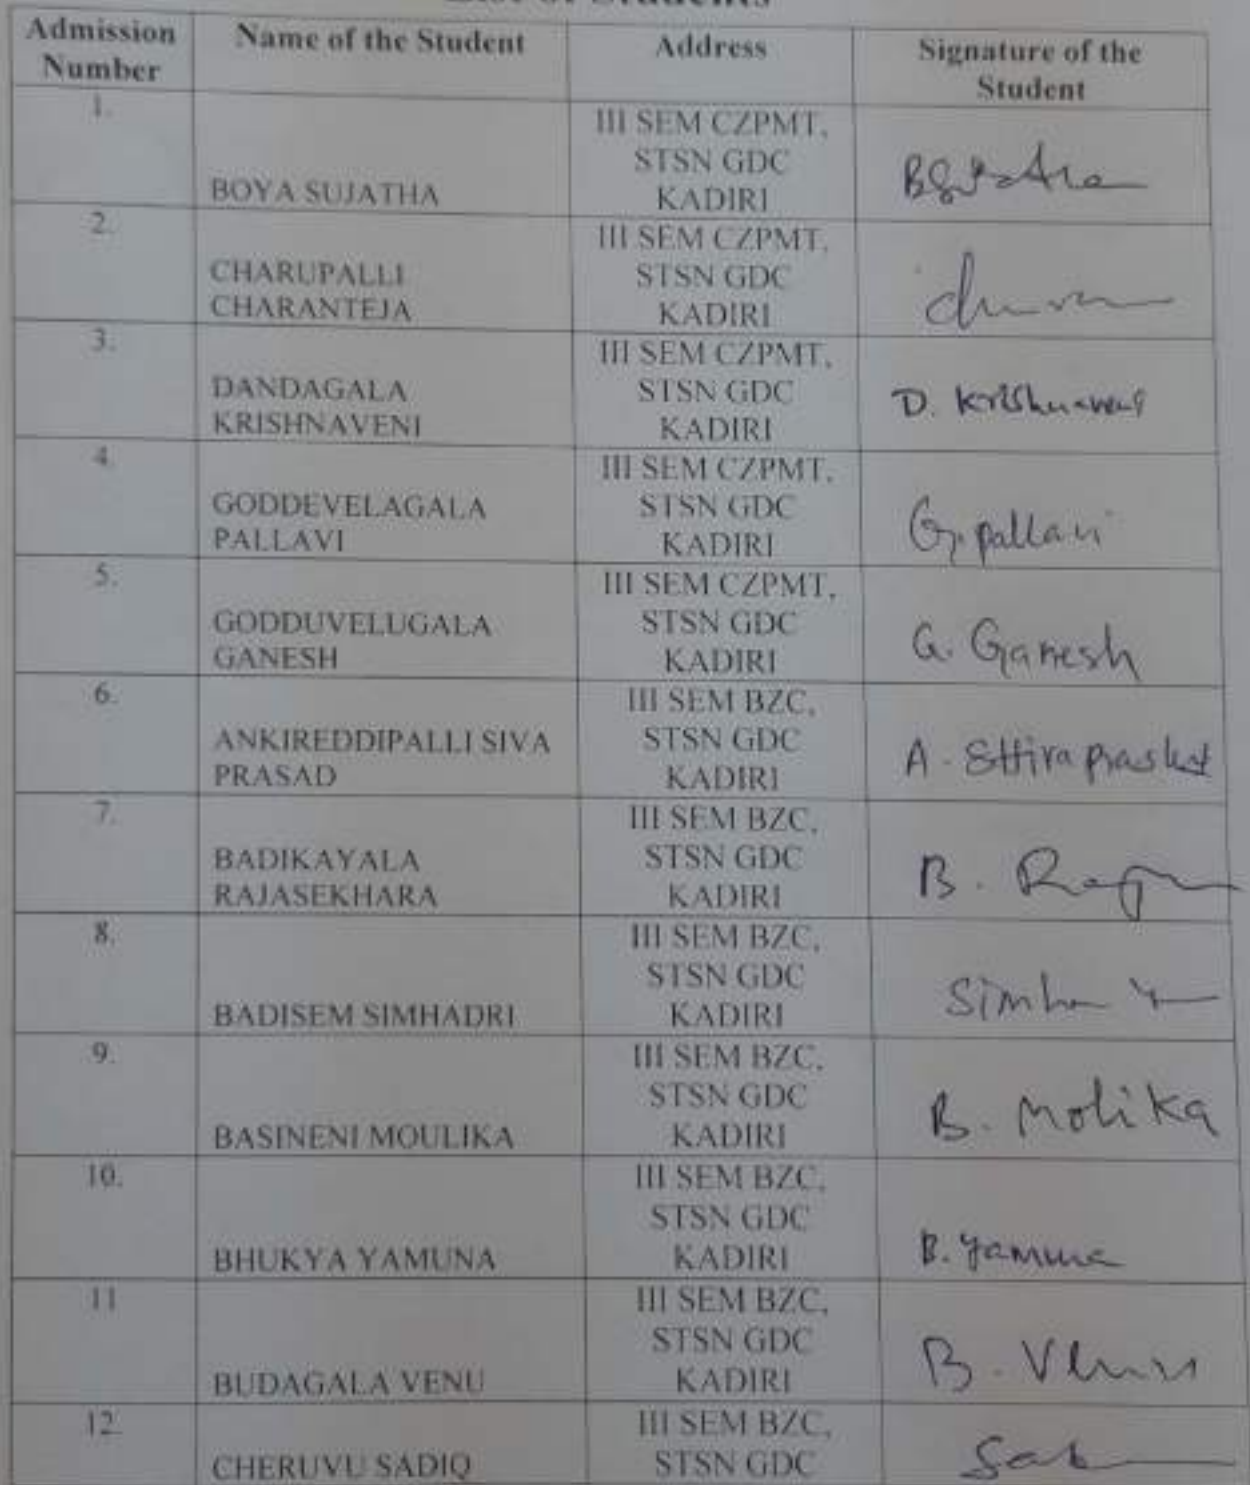 List of Students
Admission Number Name of the Student Address Signature of the Student
1. BOYA SUJATHA III SEM CZPMT, STSN GDC KADIRI
2. CHARUPALLI CHARANTEJA III SEM CZPMT, STSN GDC KADIRI
3. DANDAGALA KRISHNAVENI III SEM CZPMT, STSN GDC KADIRI D. Krishnaveni
4. GODDEVELAGALA PALLAVI III SEM CZPMT, STSN GDC KADIRI G. pallavi
5. GODDUVELUGALA GANESH III SEM CZPMT, STSN GDC KADIRI G. Ganesh
6. ANKIREDDIPALLI SIVA PRASAD III SEM BZC, STSN GDC KADIRI A.
7. BADIKAYALA RAJASEKHARA III SEM BZC, STSN GDC KADIRI B.
8. BADISEM SIMHADRI III SEM BZC, STSN GDC KADIRI
9. BASINENI MOULIKA III SEM BZC, STSN GDC KADIRI B. Molika
10. BHUKYA YAMUNA III SEM BZC, STSN GDC KADIRI B. Yamuna
11 BUDAGALA VENU III SEM BZC, STSN GDC KADIRI B. Venu
12. CHERUVU SADIQ III SEM BZC, STSN GDC